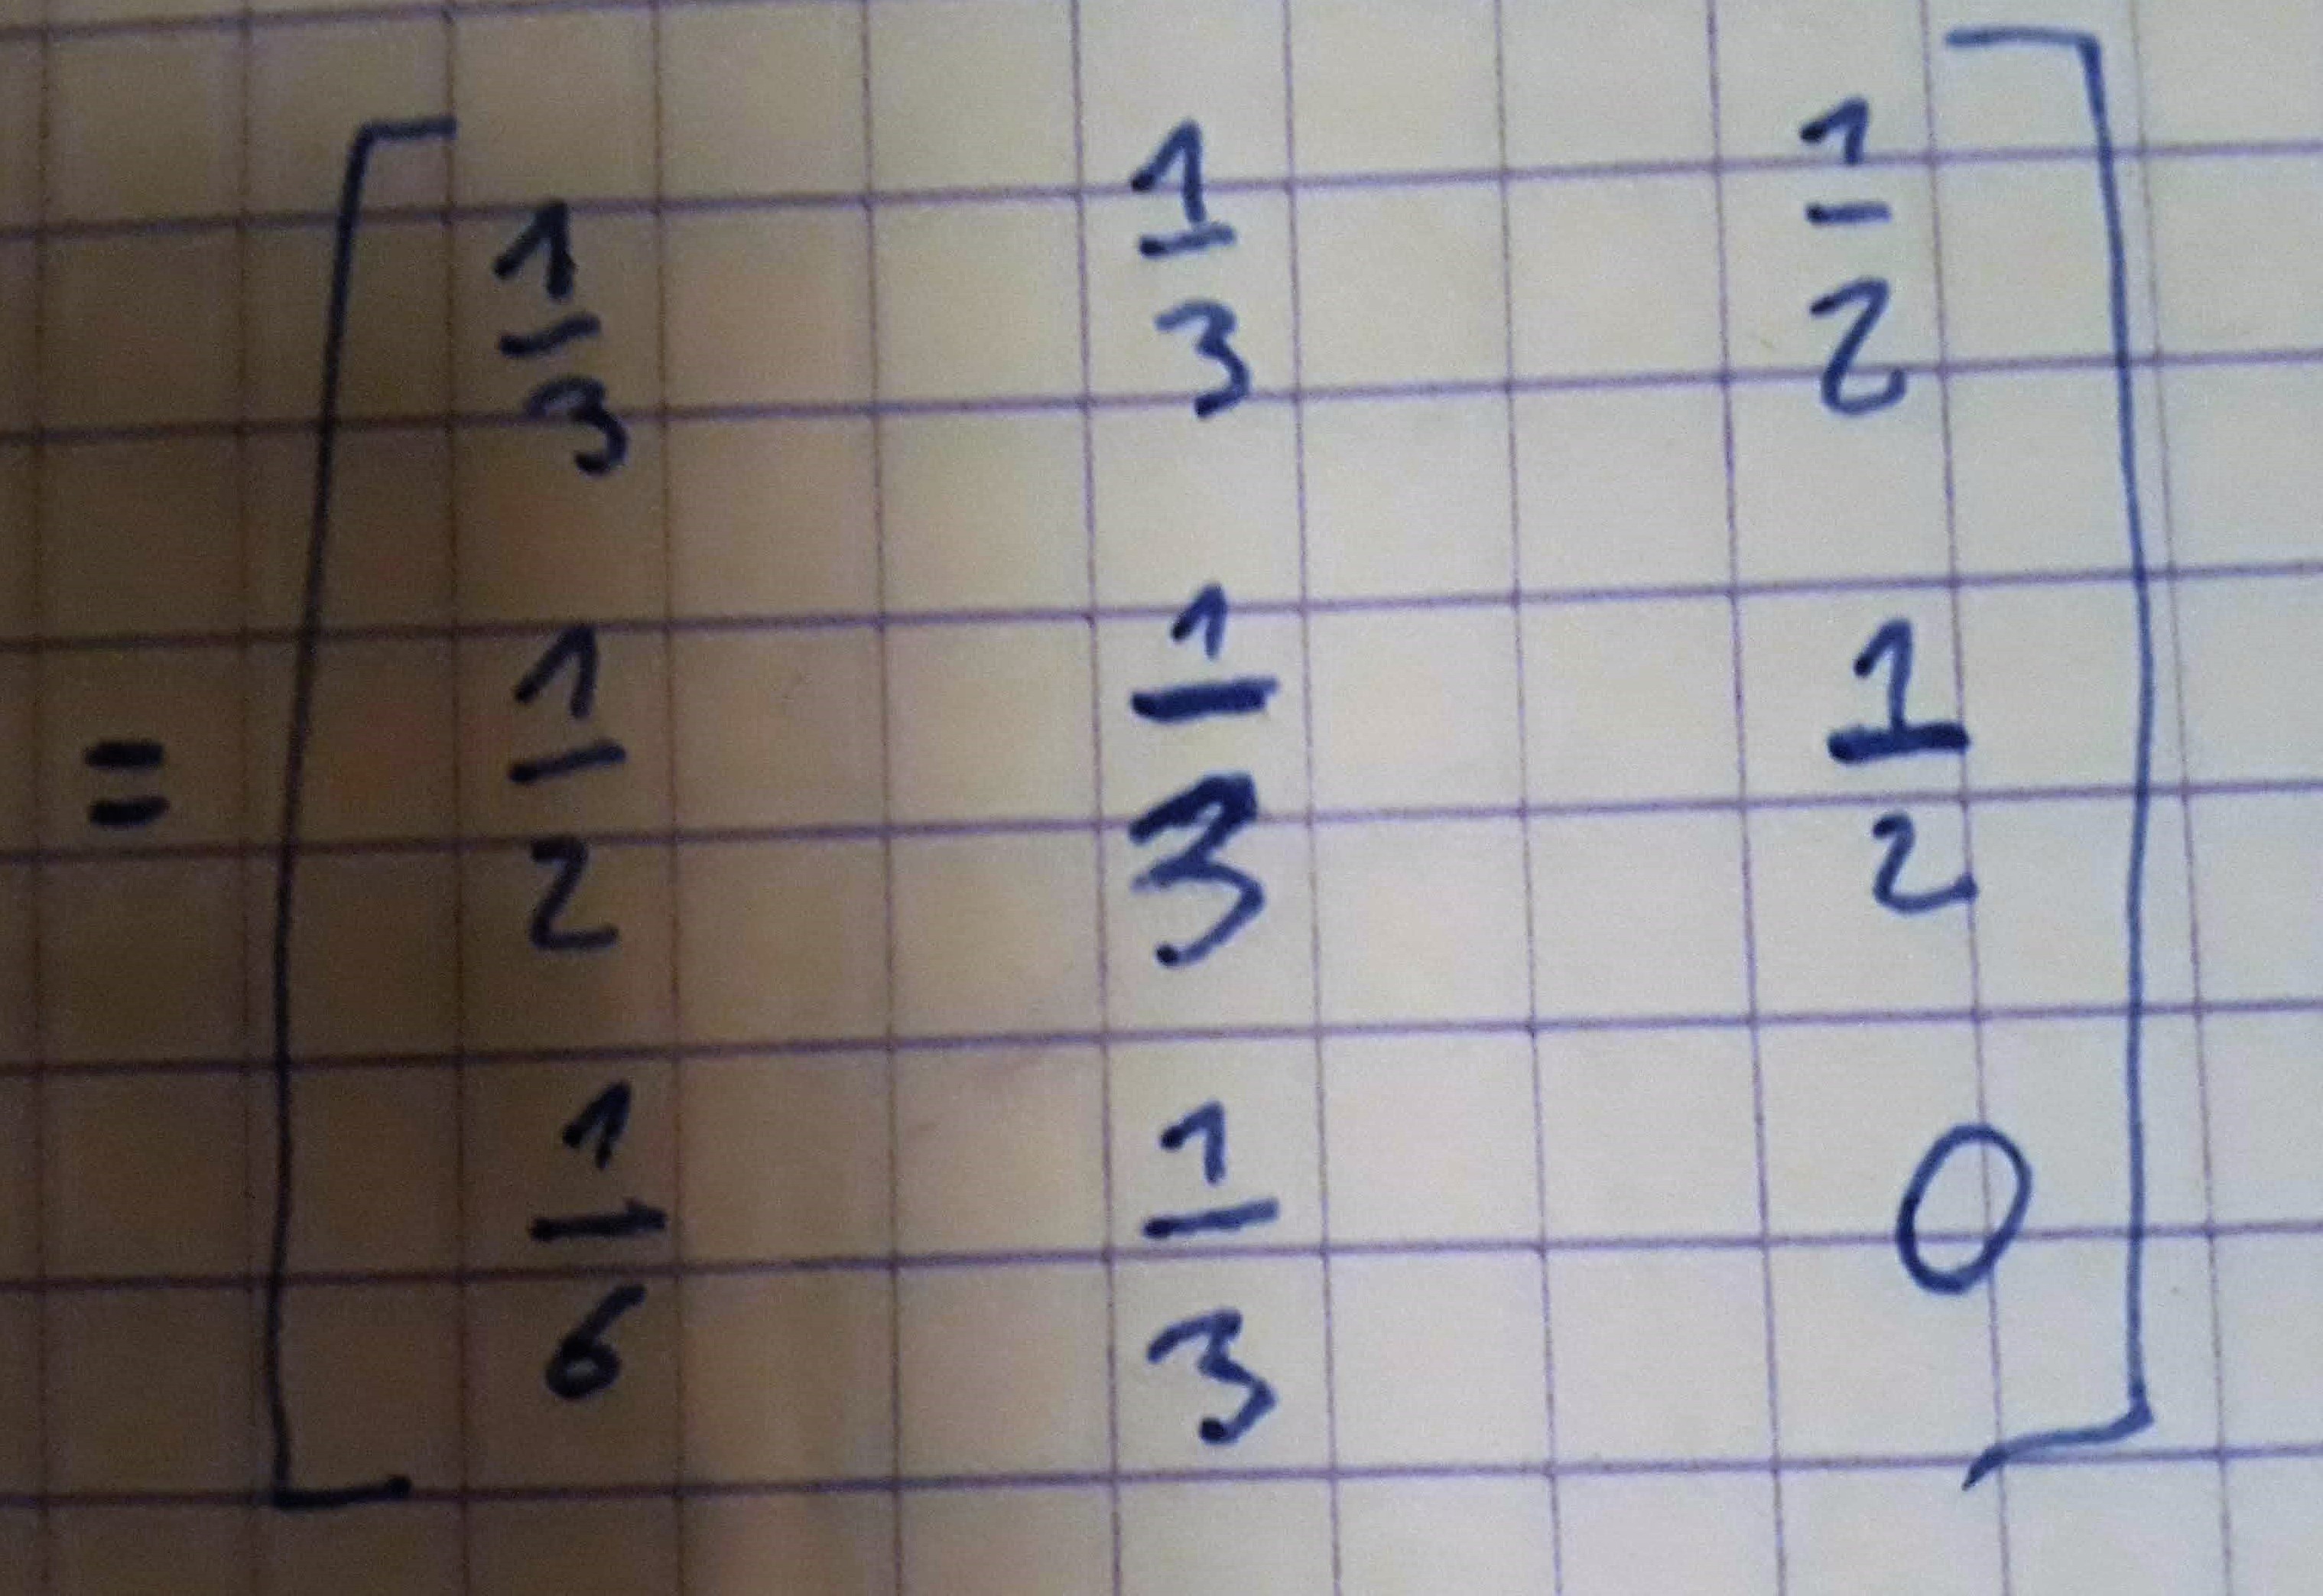 = [ 1/3 1/3 1/2
1/2 1/3 1/2
1/6 1/3 0 ]